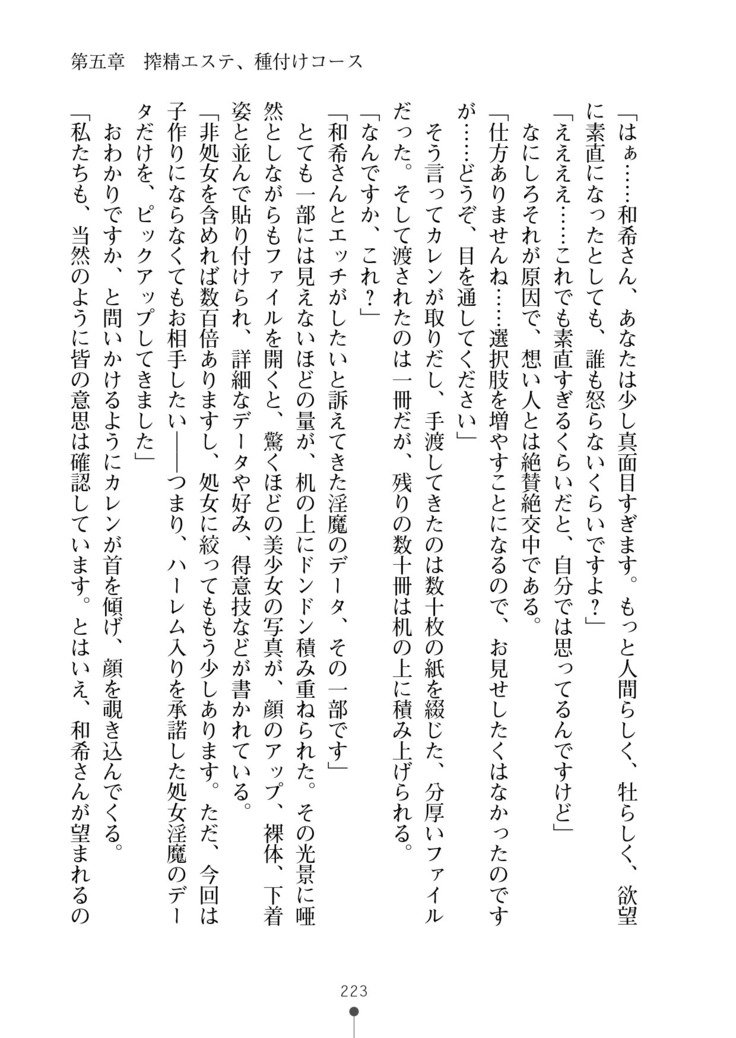 第五章　搾精エステ、種付けコース
「はぁ……和希さん、あなたは少し真面目すぎます。もっと人間らしく、牡らしく、欲望
に素直になったとしても、誰も怒らないくらいですよ？」
「ええええ……これでも素直すぎるくらいだと、自分では思ってるんですけど」
　なにしろそれが原因で、想い人とは絶賛絶交中である。
「仕方ありませんね……選択肢を増やすことになるので、お見せしたくはなかったのです
が……どうぞ、目を通してください」
　そう言ってカレンが取りだし、手渡してきたのは数十枚の紙を綴じた、分厚いファイル
だった。そして渡されたのは一冊だが、残りの数十冊は机の上に積み上げられる。
「なんですか、これ？」
「和希さんとエッチがしたいと訴えてきた淫魔のデータ、その一部です」
　とても一部には見えないほどの量が、机の上にドンドン積み重ねられた。その光景に唖
然としながらもファイルを開くと、驚くほどの美少女の写真が、顔のアップ、裸体、下着
姿と並んで貼り付けられ、詳細なデータや好み、得意技などが書かれている。
「非処女を含めれば数百倍ありますし、処女に絞ってももう少しあります。ただ、今回は
子作りにならなくてもお相手したい――つまり、ハーレム入りを承諾した処女淫魔のデー
タだけを、ピックアップしてきました」
　おわかりですか、と問いかけるようにカレンが首を傾げ、顔を覗き込んでくる。
「私たちも、当然のように皆の意思は確認しています。とはいえ、和希さんが望まれるの
223